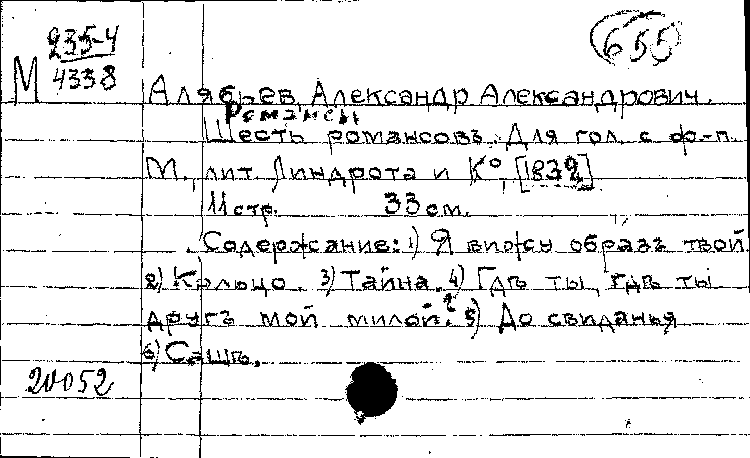 235-4
М 4338
655
Алябьев, Александр Александрович.
Романсы
Шесть романсовъ. Для гол. с ф-п.
М., лит. Линдрота и К°, [1832]
11 стр. 33 см.
Содержание: 1) Я вижу образъ твой.
2) Кольцо. 3) Тайна. 4) Гдѣ ты, гдѣ ты
другъ мой милой? 5) До свиданья
6) Сашѣ.
20052